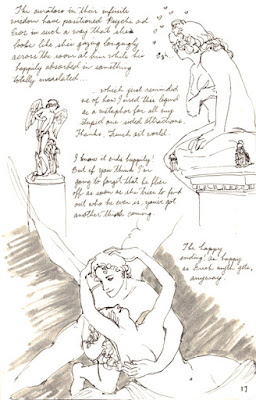 The curators in their infinite
wisdom have positioned Psyche and
Eros in such a way that she
looks like she's gazing longingly
across the room at him while he's
happily absorbed in something
totally unrelated...
... which just reminded
me of how I used this legend
as a metaphor for all my
stupid one-sided attractions.
Thanks, French art world.
I know it ends happily!
But if you think I'm
going to forget that he flies
off as soon as she tries to find
out who he even is, you've got
another think coming.
The happy
ending: as happy
as Greek myth gets,
anyway.
17